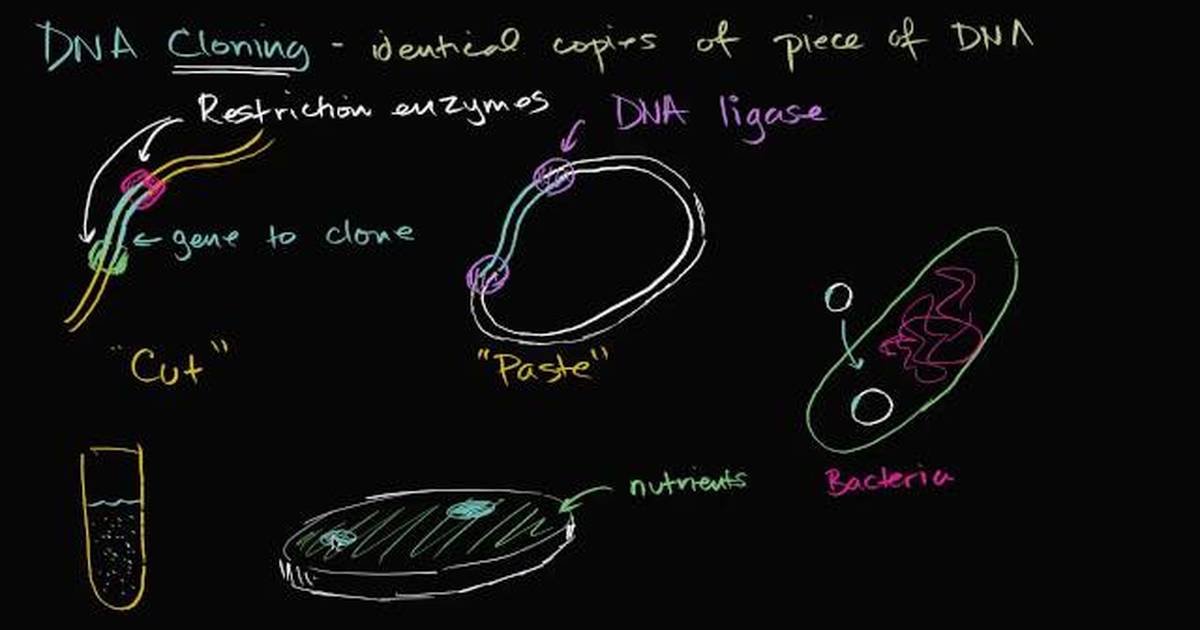 DNA Cloning - identical copies of piece of DNA
Restriction enzymes
DNA ligase
← gene to clone
"Cut"
"Paste"
nutrients
Bacteria